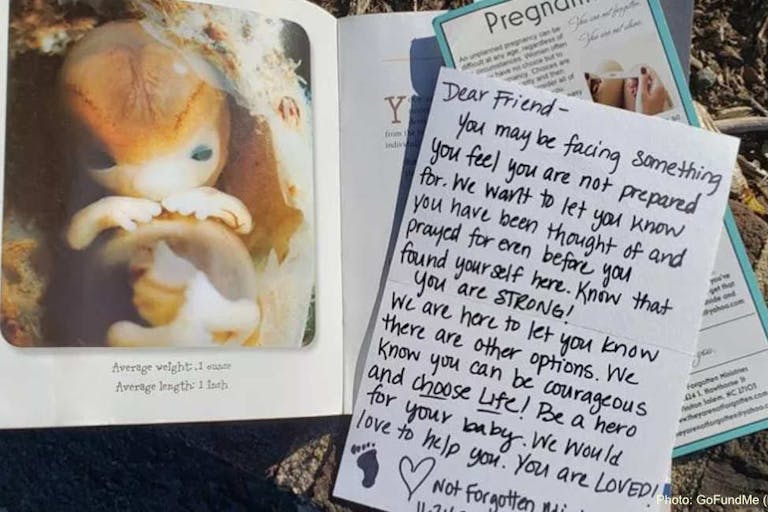 Average weight: .1 ounce
Average length: 1 inch
Y
from the
Pregnan
You are not forgotten.
You are not alone.
An unplanned pregnancy can be
difficult at any age, regardless of
circumstances. Women often
have no choice but to
Choices are
Dear Friend-
You may be facing something
you feel you are not prepared
for. We want to let you know
you have been thought of and
prayed for even before you
found yourself here. Know that
you are STRONG!
We are here to let you know
there are other options. We
know you can be courageous
and choose Life! Be a hero
for your baby. We would
love to help you. You are LOVED!
Not Forgotten
Forgotten Ministries
Hawthorne
Salem, NC 27103
Photo: GoFundMe (